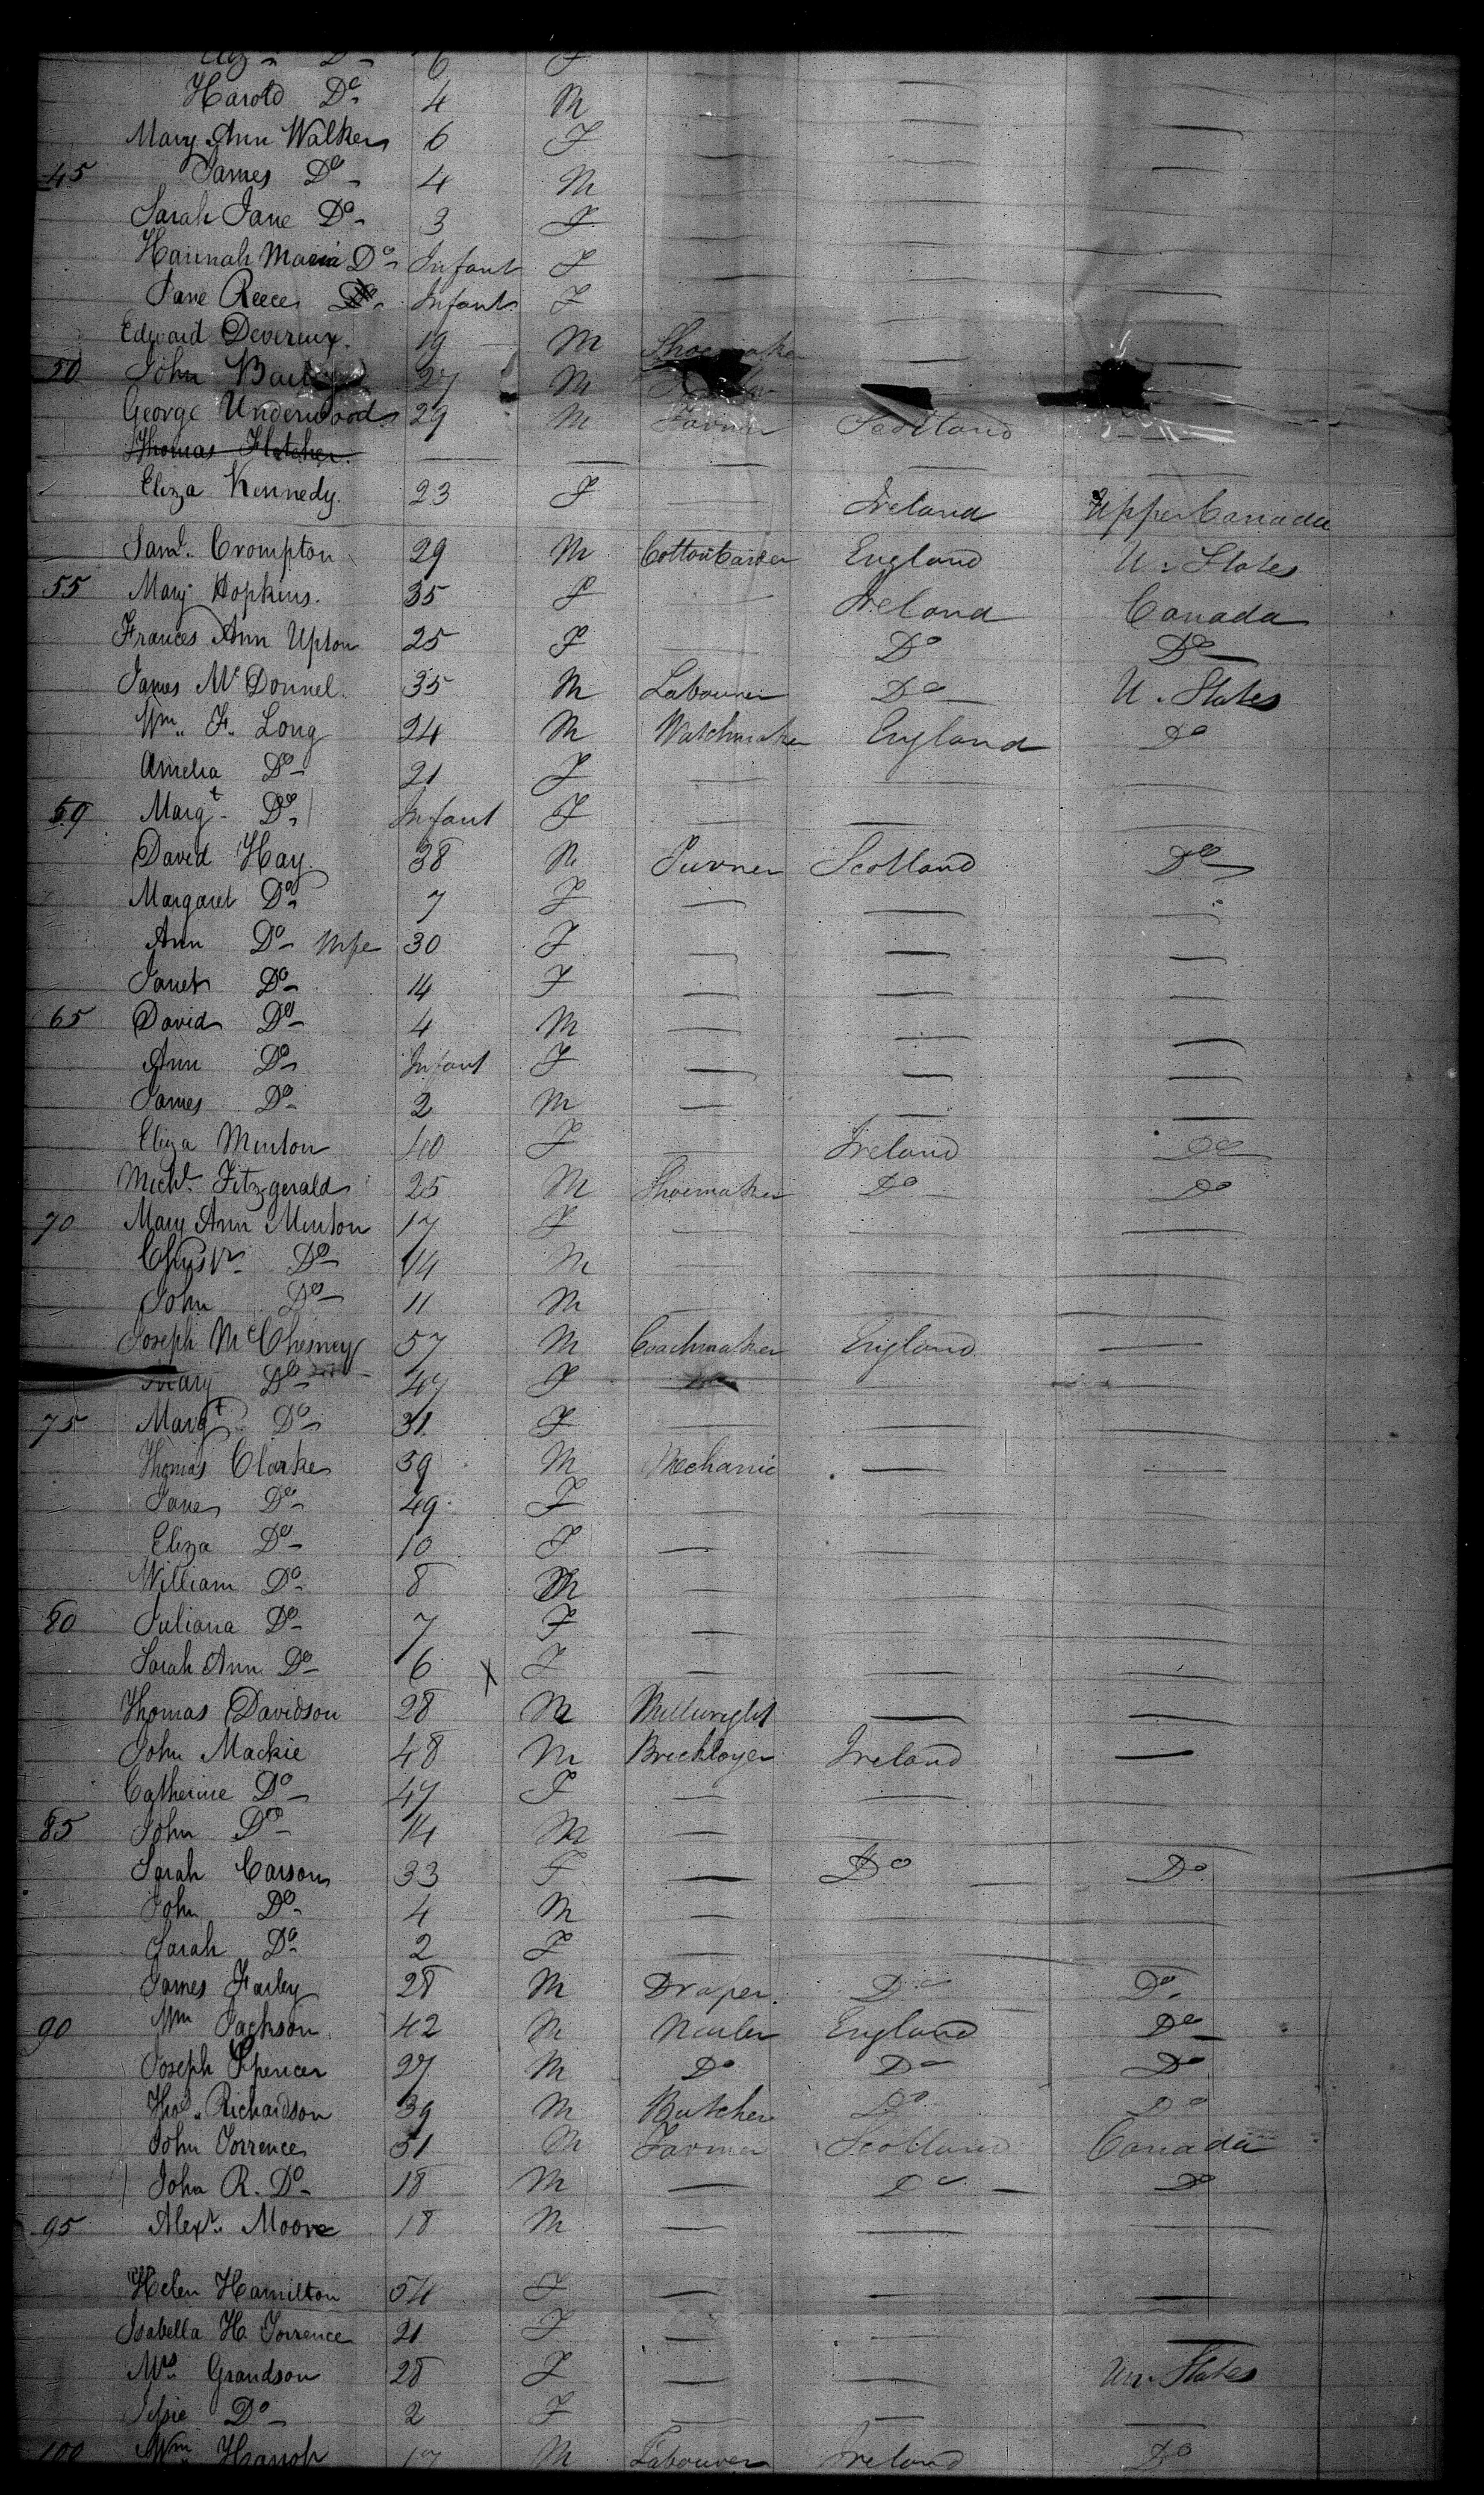 Do 6 F
Harold Do 4 M
Mary Ann Walker 6 F
45 James Do 4 M
Sarah Jane Do 3 F
Hannah Maria Do Infant F
Jane Reece Infant F
Edward Devereux 19 M Shoemaker
50 John 27 M
George Underwood 29 M Farmer Scotland
Thomas Fletcher
Eliza Kennedy 23 F Ireland Upper Canada
Saml. Crompton 29 M Cotton Carder England U. States
55 Mary Hopkins 35 F Ireland Canada
Frances Ann Upton 25 F Do Do
James McDonnel 35 M Labourer Do U. States
Wm. F. Long 24 M Watchmaker England Do
Amelia Do 21 F
59 Margt Do Infant F
David Hay 38 M Turner Scotland Do
Margaret Do 7 F
Ann Do Wife 30 F
Janet Do 14 F
65 David Do 4 M
Ann Do Infant F
James Do 2 M
Eliza Minton 40 F Ireland Do
Michl. Fitzgerald 25 M Shoemaker Do Do
70 Mary Ann Minton 17 F
Do 14 M
John Do 11 M
Joseph McChesney 57 M Coachmaker England
Mary Do 47 F
75 Margt Do 31 F
Thomas Clarke 39 M Mechanic
Jane Do 49 F
Eliza Do 10 F
William Do 8 M
80 Juliana Do 7 F
Sarah Ann Do 6 X F
Thomas Davidson 28 M Millwright
John Mackie 48 M Bricklayer Ireland
Catherine Do 47 F
85 John Do 14 M
Sarah Carson 33 F Do Do
John Do 4 M
Sarah Do 2 F
James Farley 28 M Draper Do Do
90 Wm Jackson 42 M Nailer England Do
Joseph Spencer 27 M Do Do Do
Thos. Richardson 39 M Butcher Do Do
John Torrence 51 M Farmer Scotland Canada
John R. Do 18 M Do Do
95 Alexr. Moore 18 M
Helen Hamilton 54 F
Isabella H. Torrence 21 F
Mrs Grandson 28 F Un. States
Jessie Do 2 F
100 Wm M Labourer Ireland Do